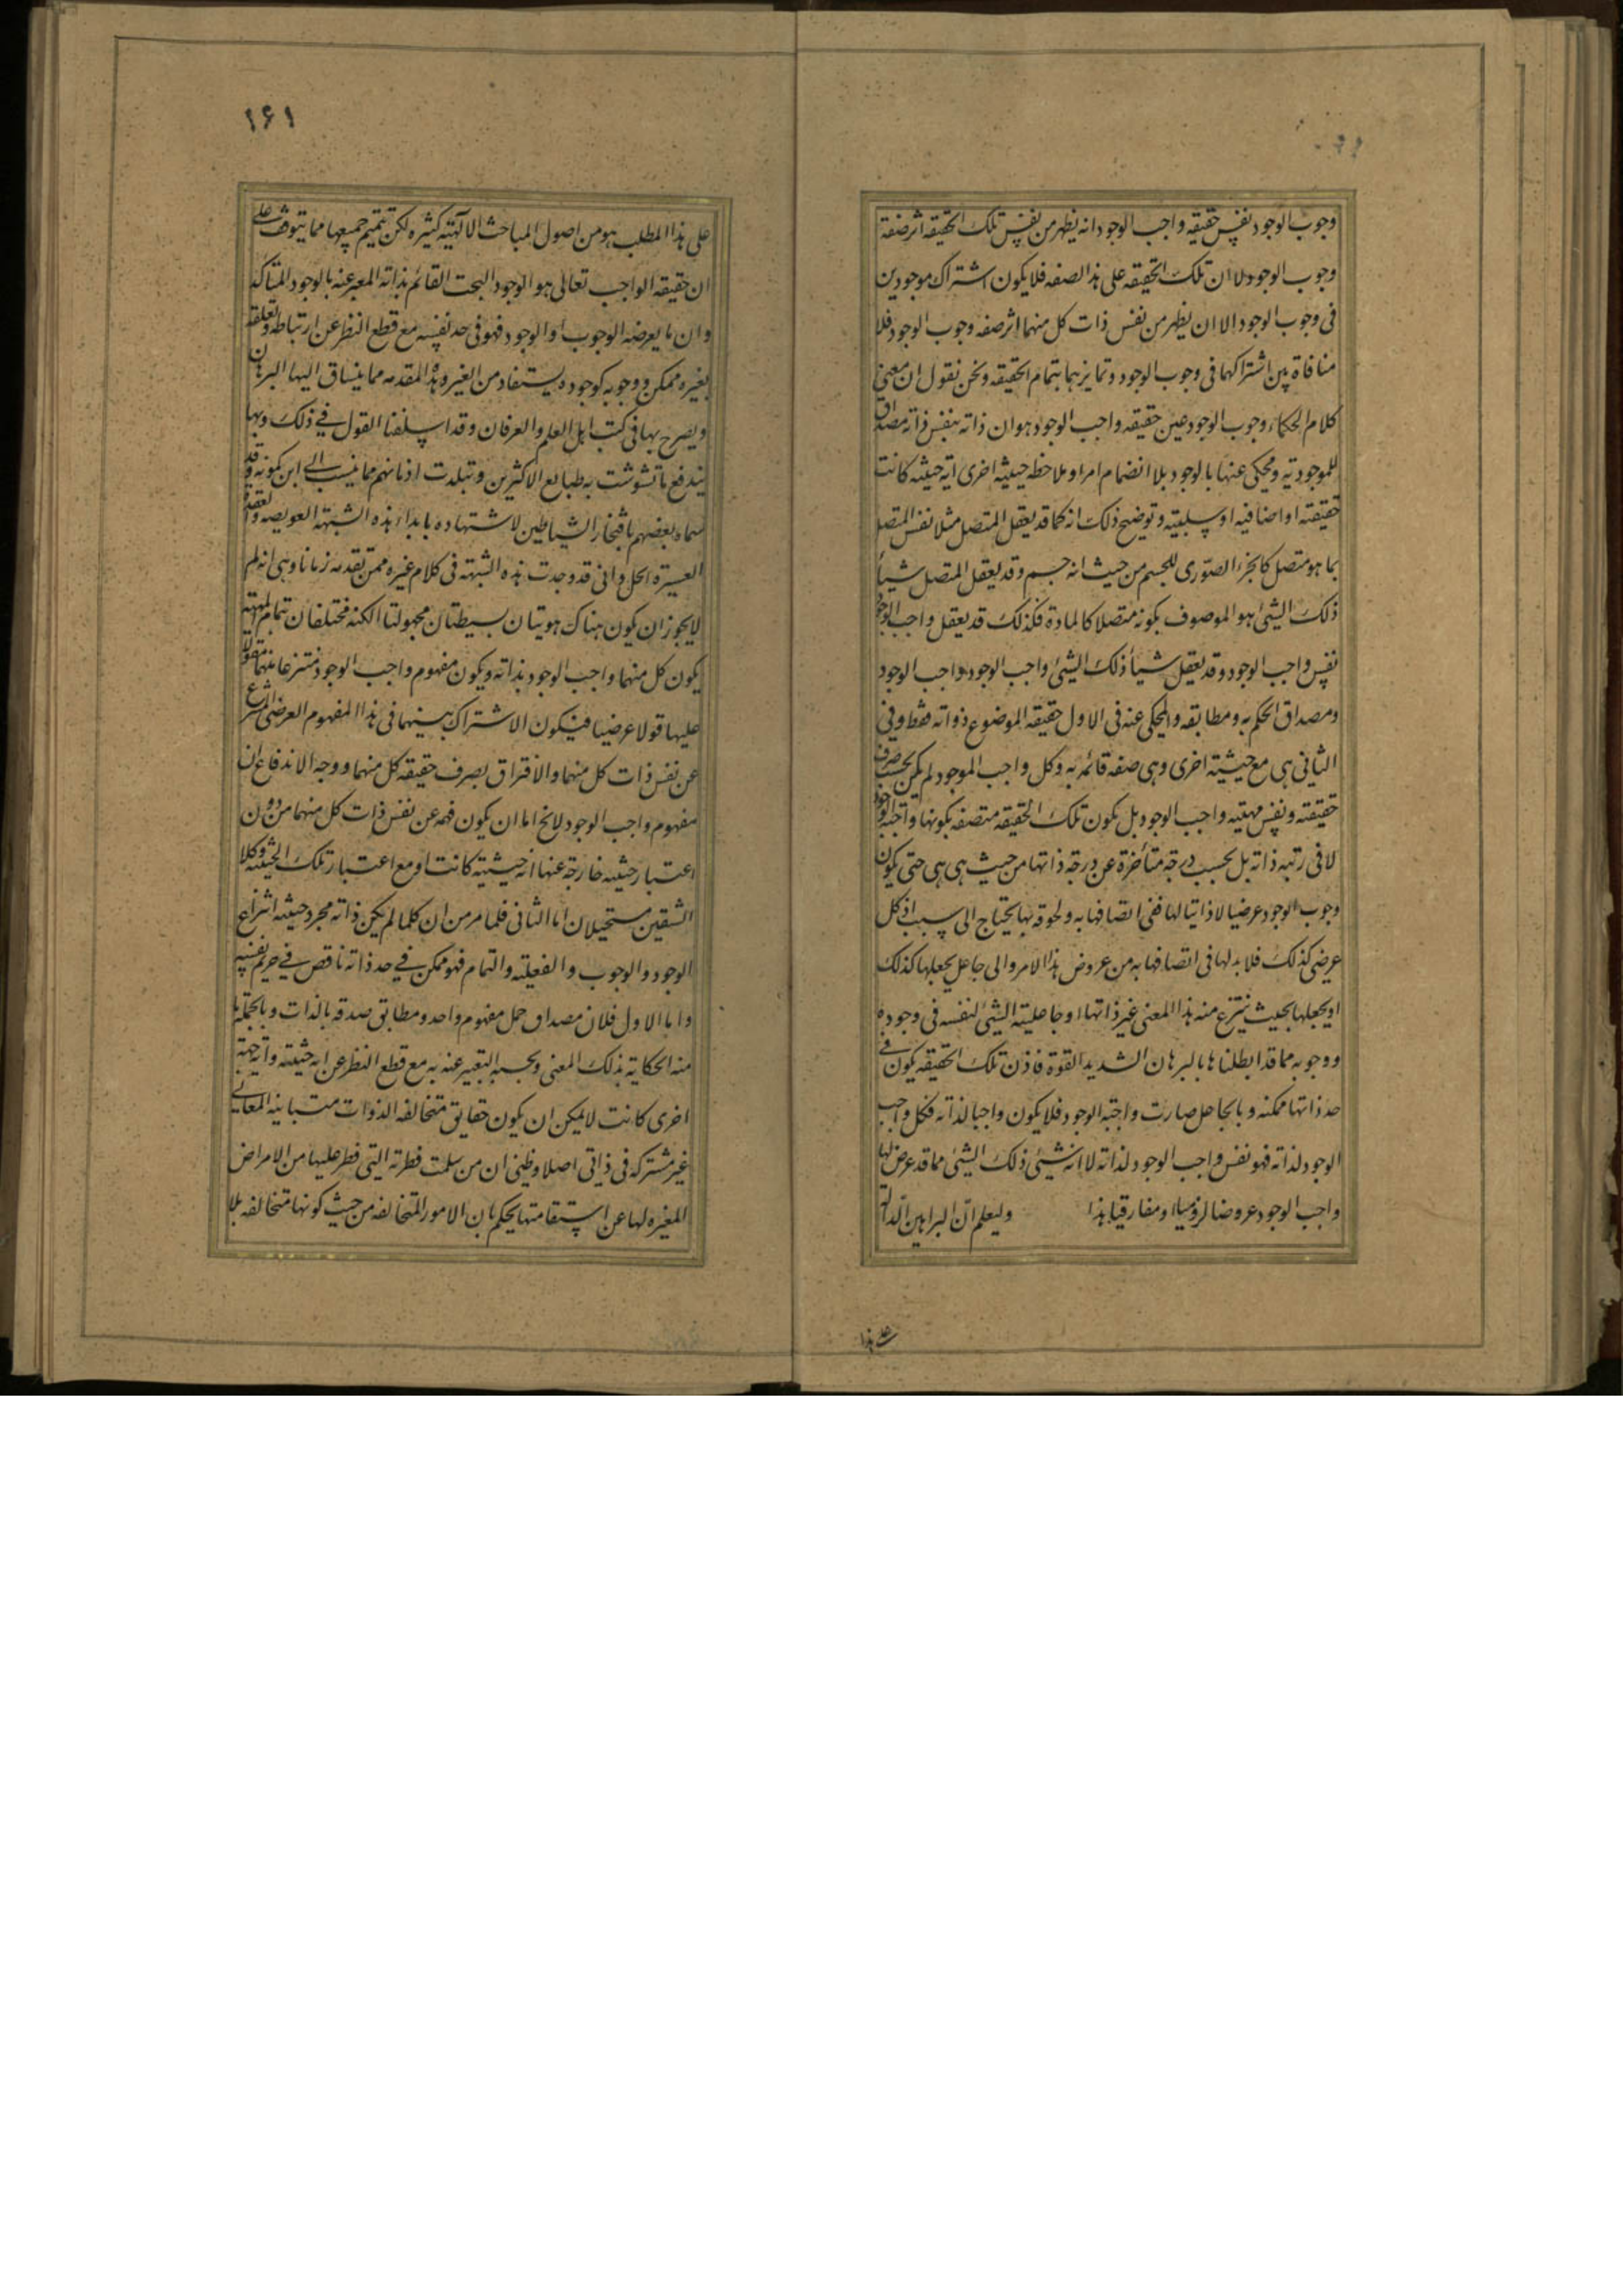 وجوب الوجود نفس حقيقه واجب الوجود انه يظهر من نفس تلك الحقيقه اثر صفة
وجوب الوجود لا ان تلك الحقيقه على هذ الصفه فلا يكون اشتراك موجودين
فى وجوب الوجود الا ان يظهر من نفس ذات كل منهما اثر صفه وجوب الوجود فلا
منافاة بين اشتراكهما فى وجوب الوجود و تمايزهما بتمام الحقيقه ونحن نقول ان معنى
كلام الحكماء وجوب الوجود عين حقيقه واجب الوجود هو ان ذاته بنفس ذاته مصداق
للموجوديه ومحكى عنها بالوجود بلا انضمام امر او ملاحظه حيثيه اخرى اية حيثيه كانت
حقيقته او اضافيه او سلبيته وتوضيح ذلك انه كما قد يعقل المتصل مثلا نفس المتصل
بما هو متصل كالجزء الصورى للجسم من حيث انه جسم وقد يعقل المتصل شيأ
ذلك الشئ هو الموصوف بكونه متصلا كالمادة فكذلك قد يعقل واجب الوجود
نفس واجب الوجود وقد يعقل شيأ ذلك الشئ واجب الوجود واجب الوجود
ومصداق الحكم به ومطابقه والمحكى عنه فى الاول حقيقه الموضوع وذواته فقط وفى
الثانى هى مع حيثيته اخرى وهى صفه قائمه به وكل واجب الموجود لم يكن بحسب صرف
حقيقته ونفس مهيته واجب الوجود بل يكون تلك الحقيقه متصفه بكونها واجبه الوجود
لا فى رتبه ذاته بل بحسب درجة متأخرة عن درجة ذاتها من حيث هى هى حتى يكون
وجوب الوجود عرضيا لا ذاتيا لها ففى اتصافها به ولحوقه بها يحتاج الى سبب اذ كل
عرضى كذلك فلا بد لها فى اتصافها به من عروض هذا الامر والى جاعل يجعلها كذلك
او يجعلها بحيث ينتزع منه هذا المعنى غير ذاتها او جاعلية الشئ لنفسه فى وجوده
ووجوبه مما قد ابطلناها بالبرهان الشديد القوة فاذن تلك الحقيقه يكون فى
حد ذاتها ممكنه وبالجاعل صارت واجبة الوجود فلا يكون واجبا لذاته فكل واجب
الوجود لذاته فهو نفس واجب الوجود لذاته لا انه شئ ذلك الشئ مما قد عرض لها
واجب الوجود عروضا لزوميا او مفارقيا هذا وليعلم انّ البراهين الدالّة
على هذا
١٦١
على هذا المطلب هو من اصول المباحث الالهيه كثيره لكن تتميم جميعها مما يتوقف على
ان حقيقه الواجب تعالى هو الوجود البحت القائم بذاته المعبر عنه بالوجود المتأكد
وان ما يعرضه الوجوب او الوجود فهو فى حد نفسه مع قطع النظر عن ارتباطه وتعلقه
بغيره ممكن ووجوبه كوجوده يستفاد من الغير وهذه المقدمه مما ينساق اليها البرهان
ويصرح بها فى كتب اهل العلم والعرفان وقد اسلفنا القول فى ذلك وبها
يندفع ما تشوشت به طبايع الاكثرين وتبلدت اذهانهم مما ينسب الى ابن كمونه وقد
سماه بعضهم بافتخار الشياطين لاشتهاده بابداء هذه الشبهة العويصه والعقدة
العسيرة الحل وانى قد وجدت هذه الشبهة فى كلام غيره ممن تقدمه زمانا وهى انه لم
لا يجوز ان يكون هناك هويتان بسيطتان مجهولتا الكنه مختلفان بتمام المهية
يكون كل منهما واجب الوجود بذاته ويكون مفهوم واجب الوجود منتزعا منهما مقولا
عليها قولا عرضيا فيكون الاشتراك بينهما فى هذا المفهوم العرضى المنتزع
عن نفس ذات كل منهما والافتراق بصرف حقيقه كل منهما ووجه الاندفاع ان
مفهوم واجب الوجود لا يخ اما ان يكون فهمه عن نفس ذات كل منهما من دون
اعتبار حيثيه خارجة عنها اية حيثيته كانت او مع اعتبار تلك الحيثيه وكلا
الشقين مستحيلان اما الثانى فلما مر من ان كلما لم يكن ذاته مجرد حيثيه انتزاع
الوجود والوجوب والفعليته والتمام فهو ممكن فى حد ذاته ناقص فى حريم نفسه
واما الاول فلان مصداق حمل مفهوم واحد ومطابق صدقه بالذات وبالجمله ما
منه الحكاية بذلك المعنى وبحسبه التعبير عنه به مع قطع النظر عن اية حيثيته واية جهة
اخرى كانت لا يمكن ان يكون حقايق متخالفه الذوات متباينه المعانى
غير مشتركه فى ذاتى اصلا وظنى ان من سلمت فطرته التى فطر عليها من الامراض
المغيره لها عن استقامتها يحكم بان الامور المتخالفه من حيث كونها متخالفه بلا